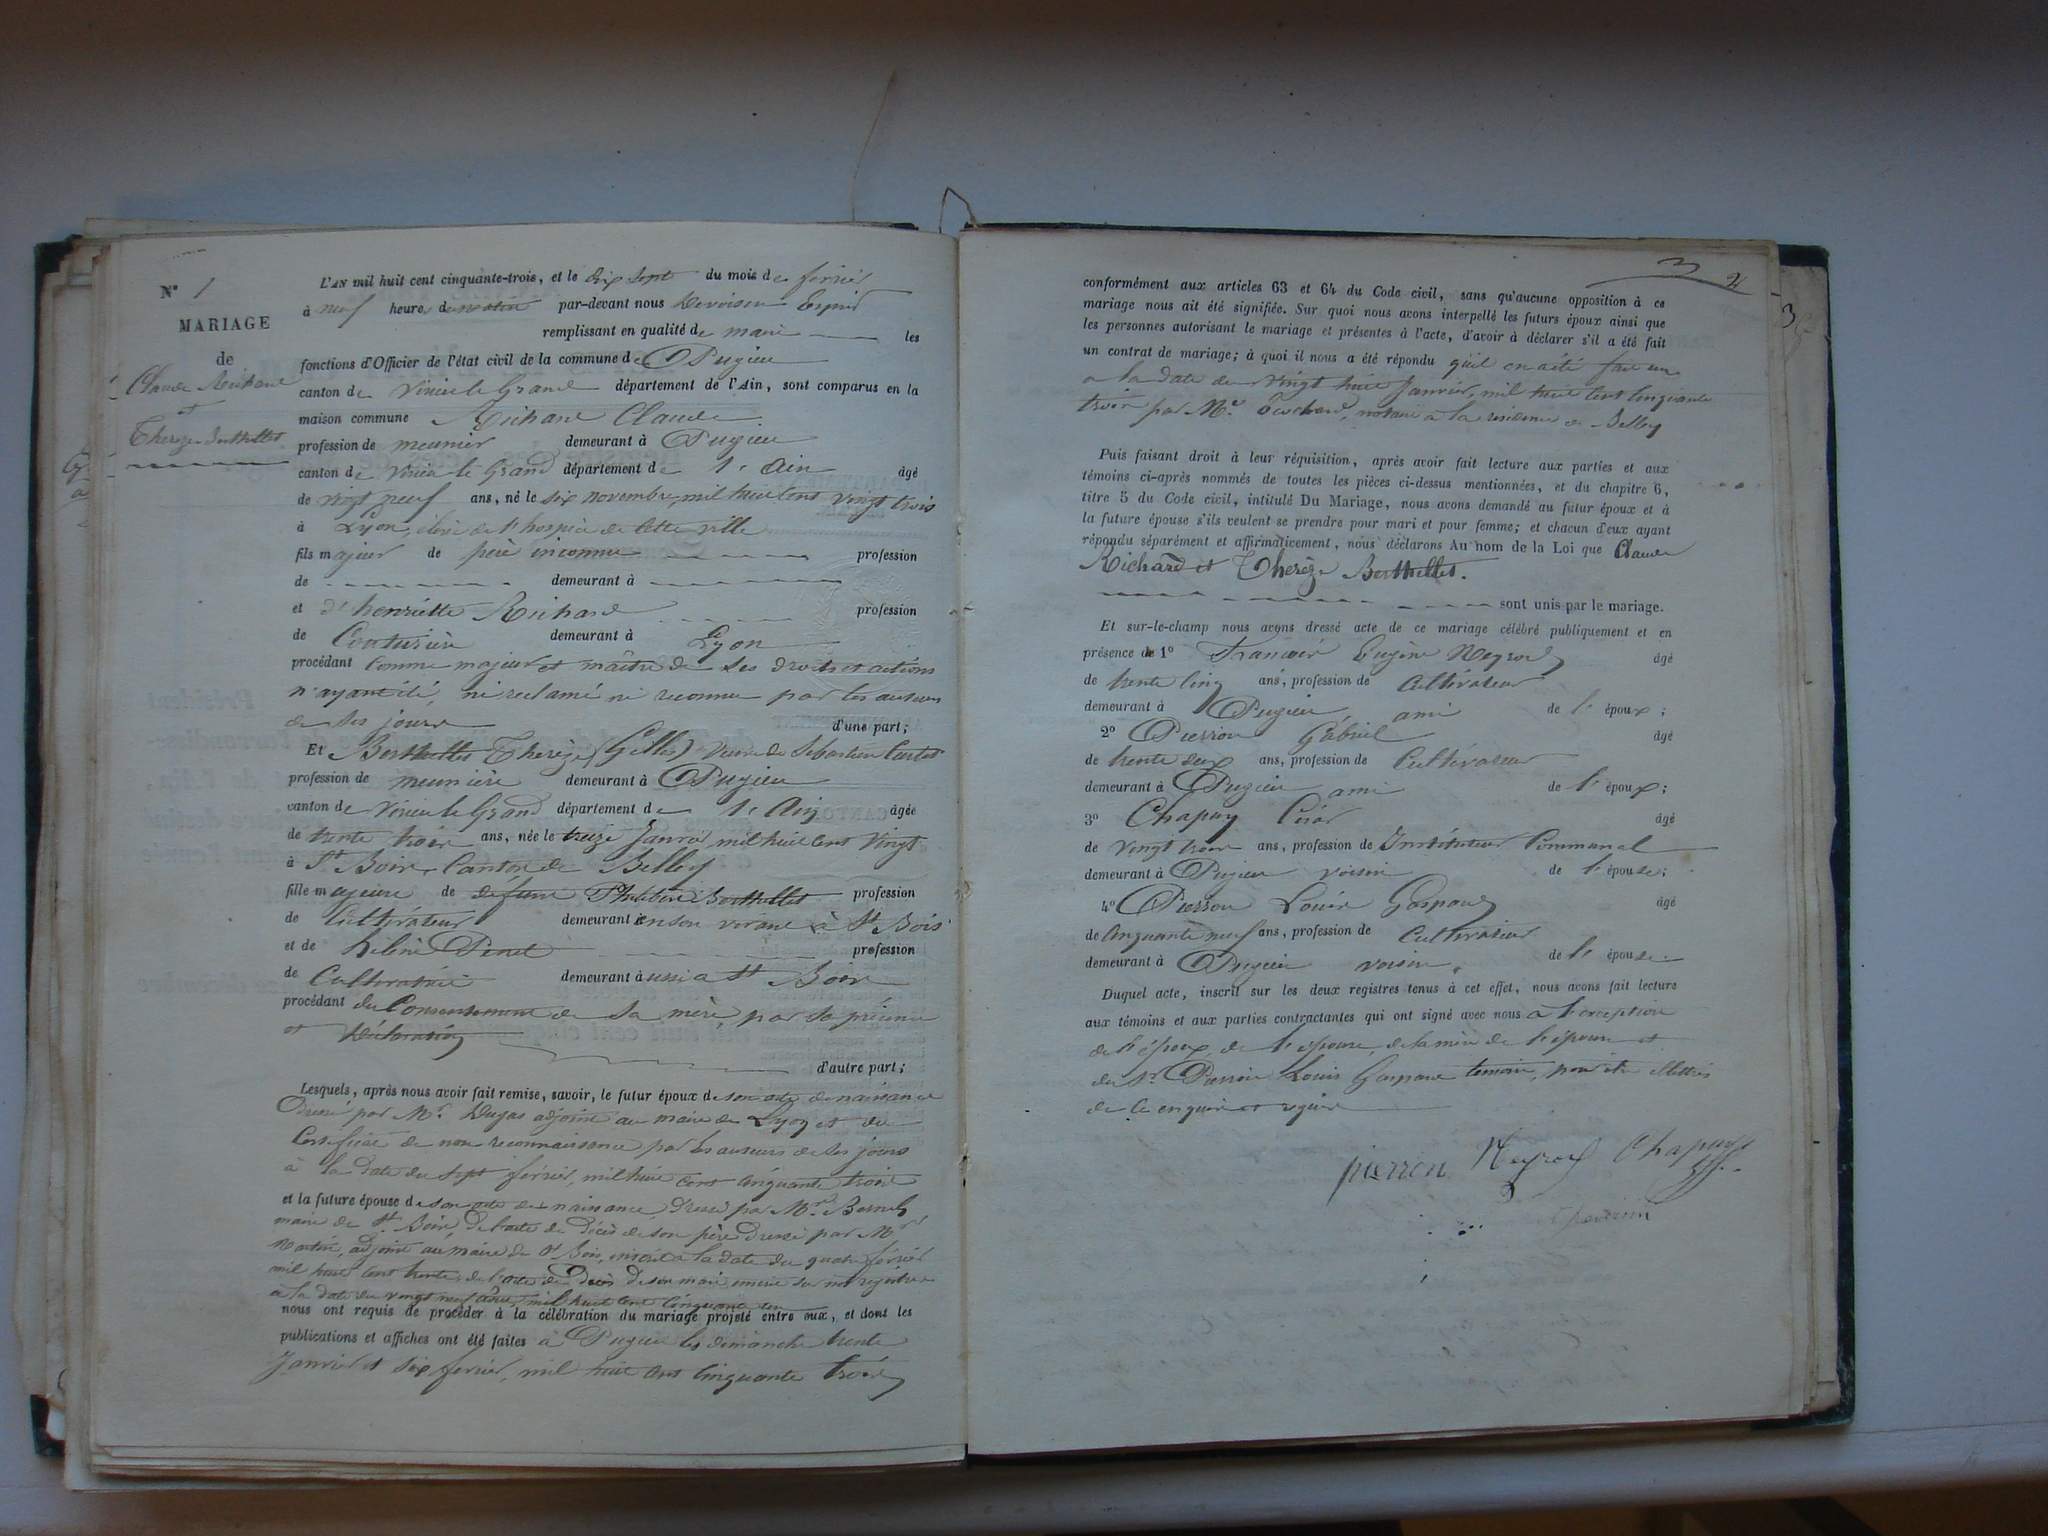 N° 1
MARIAGE
de
Claude Richard
et
Thérèze Berthellet
L'AN mil huit cent cinquante-trois, et le dix sept du mois de février
à neuf heures du matin par-devant nous
remplissant en qualité de maire les
fonctions d'Officier de l'état civil de la commune de Pugieu
canton de Virieu le Grand département de l'Ain, sont comparus en la
maison commune Richard Claude
profession de meunier demeurant à Pugieu
canton de Virieu le Grand département de l'Ain âgé
de vingt neuf ans, né le six novembre, mil huit cent vingt trois
à Lyon, élevé de l'hospice de cette ville
fils majeur de père inconnu profession
de demeurant à
et d'henriette Richard profession
de Couturière demeurant à Lyon
procédant comme majeur et maître de ses droits et actions
n'ayant été, ni reclamé ni reconnu par les auteurs
de ses jours d'une part;
Et Berthellet Thérèze (Gilles) veuve de Sébastien
profession de meunière demeurant à Pugieu
canton de Virieu le Grand département de l'Ain âgée
de trente trois ans, née le treize Janvier mil huit cent vingt
à St Bois, Canton de Belley
fille majeure de défunt Philibert Berthellet profession
de Cultivateur demeurant en son vivant à St Bois
et de hélène Penet profession
de Cultivatrice demeurant aussi à St Bois
procédant du Consentement de sa mère, par sa présence
et déclaration
d'autre part;
Lesquels, après nous avoir fait remise, savoir, le futur époux de son acte de naissance
dressé par Mr. Dugas adjoint au maire de Lyon et du
Certificat de non reconnaissance par les auteurs de ses jours
à la date du sept février, mil huit cent cinquante trois
et la future épouse de son acte de naissance, dressé par Mr.
maire de St Bois, de l'acte de décès de son père dressé par Mr
Martin, adjoint au maire de St Bois, inscrit à la date du quatre février
mil huit cent trente, de l'acte de Décès de son mari inscrit sur nos registres
à la date du vingt neuf août, mil huit cent cinquante un
nous ont requis de procéder à la célébration du mariage projeté entre eux, et dont les
publications et affiches ont été faites à Pugieu les dimanches trente
Janvier et six février, mil huit cent cinquante trois
3
2
3
conformément aux articles 63 et 64 du Code civil, sans qu'aucune opposition à ce
mariage nous ait été signifiée. Sur quoi nous avons interpellé les futurs époux ainsi que
les personnes autorisant le mariage et présentes à l'acte, d'avoir à déclarer s'il a été fait
un contrat de mariage; à quoi il nous a été répondu qu'il en a été fait un
à la date du vingt huit Janvier, mil huit cent cinquante
trois par Me. notaire à la résidence de Belley
Puis faisant droit à leur réquisition, après avoir fait lecture aux parties et aux
témoins ci-après nommés de toutes les pièces ci-dessus mentionnées, et du chapitre 6,
titre 5 du Code civil, intitulé Du Mariage, nous avons demandé au futur époux et à
la future épouse s'ils veulent se prendre pour mari et pour femme; et chacun d'eux ayant
répondu séparément et affirmativement, nous déclarons Au nom de la Loi que Claude
Richard et Thérèze Berthellet.
sont unis par le mariage.
Et sur-le-champ nous avons dressé acte de ce mariage célébré publiquement et en
présence de 1° François Eugène Neyrod âgé
de trente cinq ans, profession de Cultivateur
demeurant à Pugieu ami de l'époux;
2° Pierron Gabriel âgé
de trente deux ans, profession de Cultivateur
demeurant à Pugieu ami de l'époux;
3° Chapuy César âgé
de vingt trois ans, profession de Instituteur Communal
demeurant à Pugieu voisin de l'épouse;
4° Pierron Louis Gaspard âgé
de Cinquante neuf ans, profession de Cultivateur
demeurant à Pugieu voisin de l'épouse
Duquel acte, inscrit sur les deux registres tenus à cet effet, nous avons fait lecture
aux témoins et aux parties contractantes qui ont signé avec nous à l'exception
de l'époux, de l'épouse, de la mère de l'épouse et
du Sr Pierron Louis Gaspard témoin, pour être illettrés
de ce enquis et requis
pierron Neyrod Chapuy